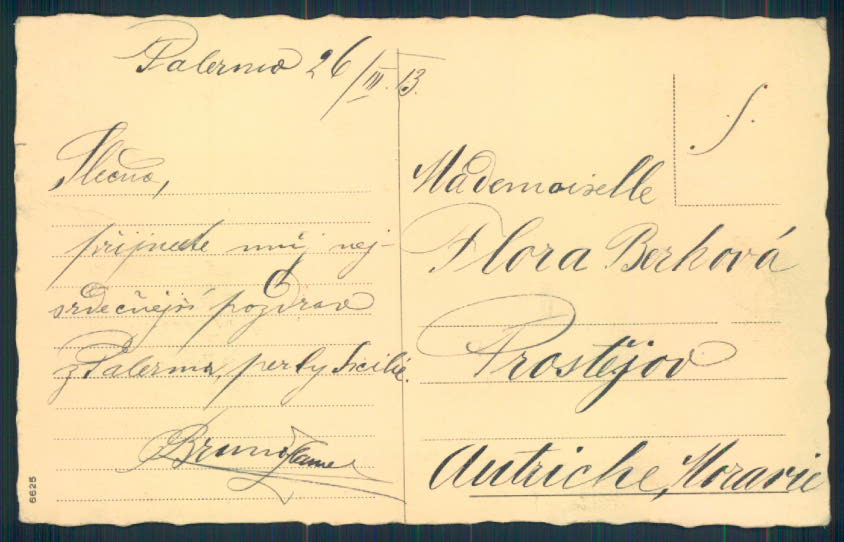 Palermo 26/III. 13.
Slečno,
přijměte můj nej-
srdečnější pozdrav
z Palerma, perly Sicilie.
Bruno
6625
S.
Mademoiselle
Flora Berková
Prostějov
Autriche, Moravie